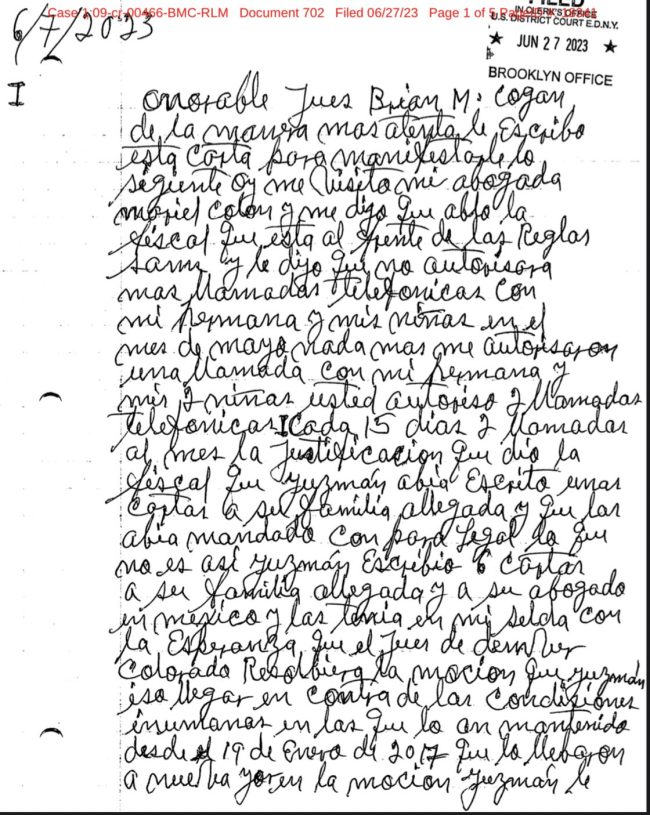 Case 1:09-cr-00466-BMC-RLM Document 702 Filed 06/27/23 Page 1 of 5
FILED
IN CLERK'S OFFICE
U.S. DISTRICT COURT E.D.N.Y.
★ JUN 27 2023 ★
BROOKLYN OFFICE
6/7/2023
I
onorable Jues Brian M. Cogan
de la manera mas atenta le Escribo
esta Carta para manifestarle lo
sigiente oy me Visito mi abogada
mariel colon y me dijo que ablo la
fiscal que esta al frente de las Reglas
Sams y le dijo que no autorisara
mas llamadas telefonicas con
mi hermana y mis niñas en el
mes de mayo nada mas me autorisaron
una llamada con mi hermana y
mis 2 niñas usted autoriso 2 llamadas
telefonicas Cada 15 dias 2 llamadas
al mes la Justificacion que dio la
fiscal que yuzmán abia Escrito unas
Cartas a su familia allegada y que las
abia mandado con para Legal lo que
no es asi yuzmán Escribio 6 cartas
a su familia allegada y a su abogado
en mexico y las tenia en mi selda con
la Esperanza que el Jues de denver
Colorado Resolbiera la mocion que yuzmán
iso llegar en contra de las Condiziones
inumanas en las que lo an mantenido
desde el 19 de Enero de 2017 que lo llevaron
a nueba yor en la mocion yuzmán le